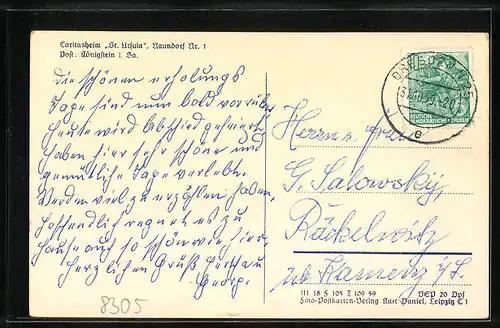 Caritasheim „St. Ursula", Naundorf Nr. 1
Post: Königstein i. Sa.
Die schönen erholungs
Tage sind nun bald vorrüber
heute wird Abschied gefeiert
haben hier sehr schöne und
gemütliche Tage verlebt.
Werden viel zu erzählen haben,
hoffentlich regnet es zu
hause auch so schön wie hier.
herzlichen Gruß
Georg.
8305
DEUTSCHE
DEMOKRATISCHE REPUBLIK
e
Herrn u. Frau
G. Salowsky,
Räckelwitz
Kamenz i/S.
III 18 F 105 T 109 59
VEP 20 Dpf
Foto-Postkarten-Verlag Kurt Daniel, Leipzig C 1